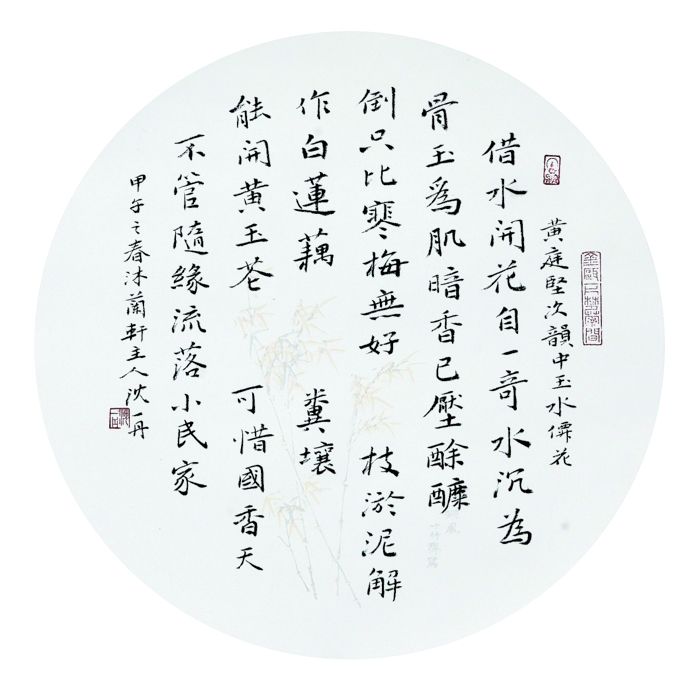 黄庭堅次韻中玉水僊花
借水開花自一竒水沉為
骨玉爲肌暗香已壓酴醾
倒只比寒梅無好 枝淤泥解
作白蓮藕 糞壤
能開黄玉花 可惜國香天
不管隨緣流落小民家
甲午之春沐蘭軒主人沈一丹